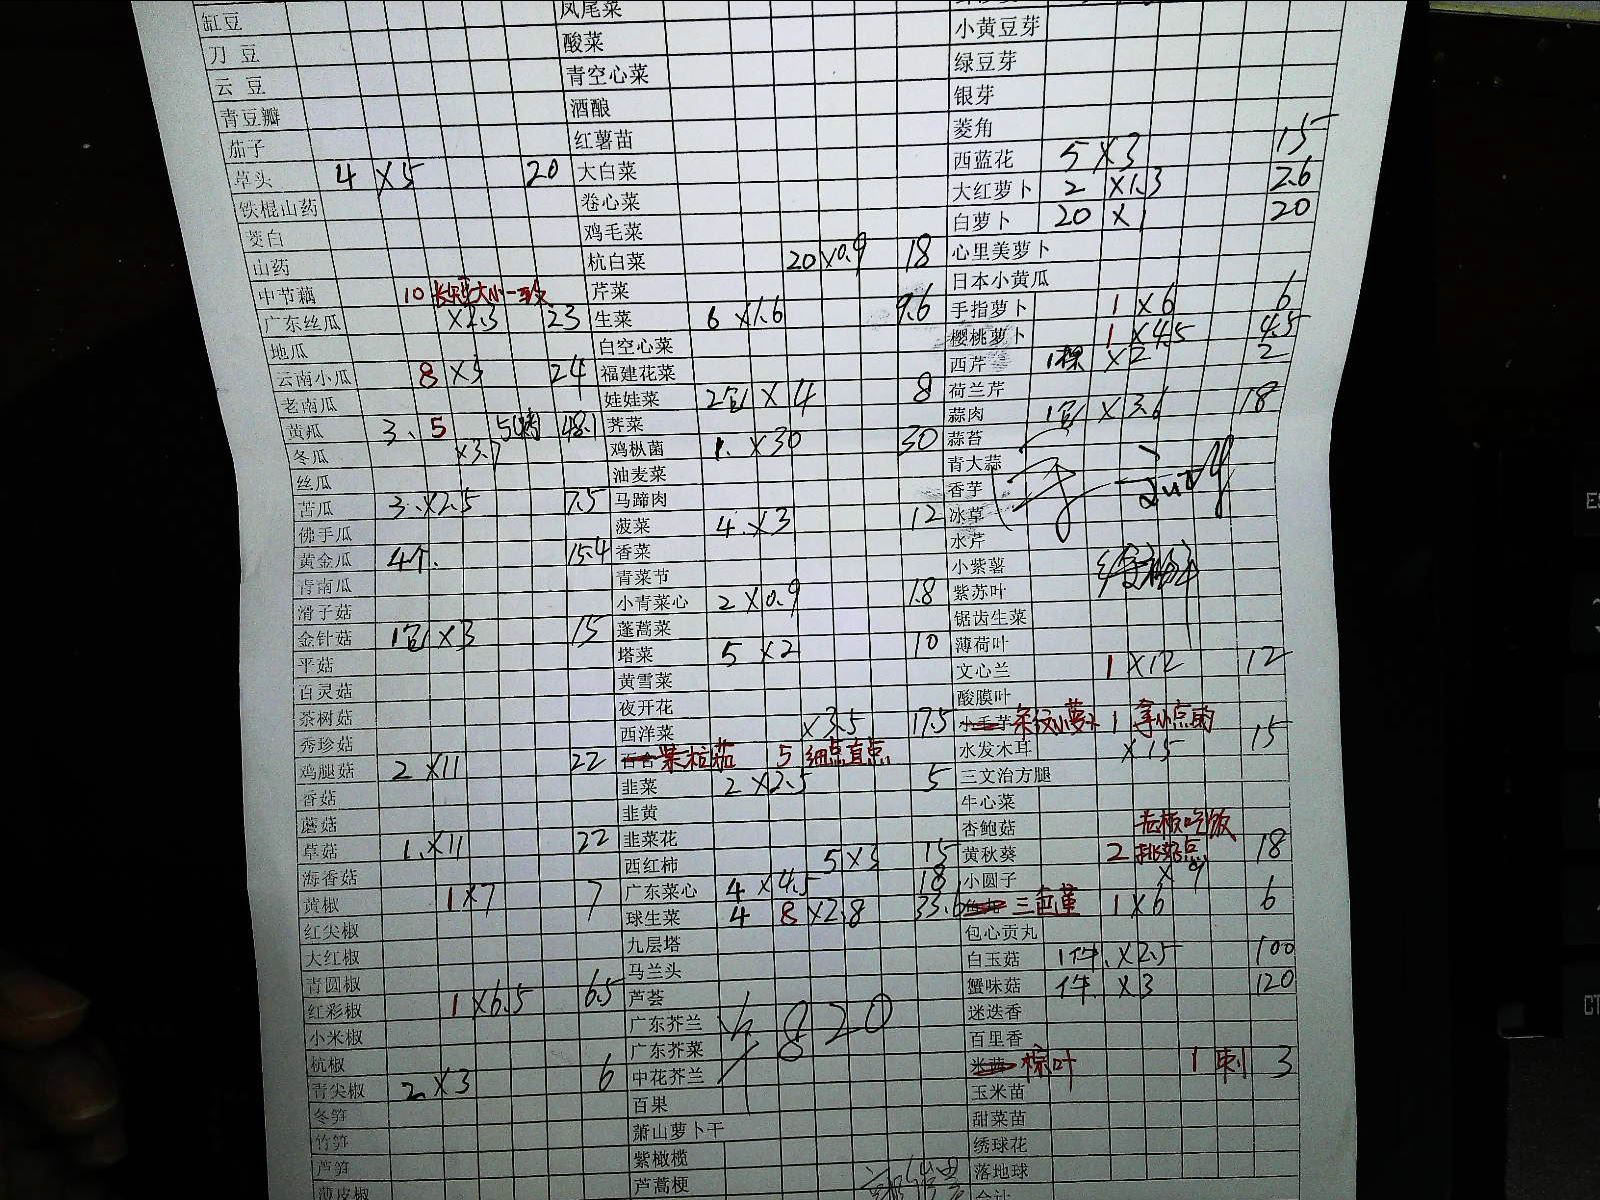 缸豆
刀 豆
云 豆
青豆瓣
茄子
草头 4 ×5 20
铁棍山药
茭白
山药
中节藕 10 大小一致
广东丝瓜 ×2.3 23
地瓜
云南小瓜 8 ×3 24
老南瓜
黄瓜 3. 5 48.1
冬瓜 ×3.7
丝瓜
苦瓜 3. ×2.5 7.5
佛手瓜
黄金瓜 4个. 15.4
青南瓜
滑子菇
金针菇 1包 ×3 15
平菇
百灵菇
茶树菇
秀珍菇
鸡腿菇 2 ×11 22
香菇
蘑菇
草菇 1. ×11 22
海香菇
黄椒 1 ×7 7
红尖椒
大红椒
青圆椒
红彩椒 1 ×6.5 6.5
小米椒
杭椒
青尖椒 2 ×3 6
冬笋
竹笋
芦笋
薄皮椒
凤尾菜
酸菜
青空心菜
酒酿
红薯苗
大白菜
卷心菜
鸡毛菜
杭白菜 20 ×0.9 18
芹菜
生菜 6 ×1.6 9.6
白空心菜
福建花菜
娃娃菜 2包 × 4 8
荠菜
鸡枞菌 1. ×30 30
油麦菜
马蹄肉
菠菜 4. ×3 12
香菜
青菜节
小青菜心 2 ×0.9 1.8
蓬蒿菜
塔菜 5 ×2 10
黄雪菜
夜开花
西洋菜 ×3.5 17.5
百合 5 细点直点
韭菜 2 ×2.5 5
韭黄
韭菜花
西红柿 5 ×3 15
广东菜心 4 ×4.5 18
球生菜 4 8 ×2.8 33.6
九层塔
马兰头
芦荟
广东芥兰 820
广东芥菜
中花芥兰
百果
萧山萝卜干
紫橄榄
芦蒿梗
小黄豆芽
绿豆芽
银芽
菱角
西蓝花 5 ×3 15
大红萝卜 2 ×1.3 2.6
白萝卜 20 ×1 20
心里美萝卜
日本小黄瓜
手指萝卜 1 ×6 6
樱桃萝卜 1 ×4.5 4.5
西芹 1棵 ×2 2
荷兰芹
蒜肉 1包 ×3.6 18
蒜苔
青大蒜
香芋
冰草
水芹
小紫薯
紫苏叶
锯齿生菜
薄荷叶
文心兰 1 ×12 12
酸膜叶
小毛芋 1 拿小点的
水发木耳 ×15 15
三文治方腿
牛心菜
杏鲍菇
黄秋葵 2 18
小圆子 × 9
三色堇 1 ×6 6
包心贡丸
白玉菇 1件. ×2.5 100
蟹味菇 1件 ×3 120
迷迭香
百里香
棕叶 1 刺 3
玉米苗
甜菜苗
绣球花
落地球
合计